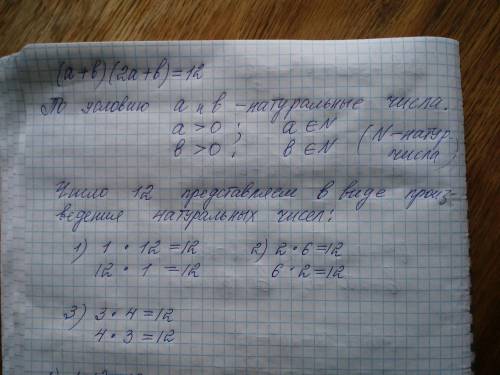 (a+в)(2a+в)=12
По условию a и в -натуральные числа.
a>0; a∈N
в>0; в∈N (N-натур.
числа)
Число 12 представляем в виде произ-
ведения натуральных чисел:
1) 1·12=12 2) 2·6=12
12·1=12 6·2=12
3) 3·4=12
4·3=12